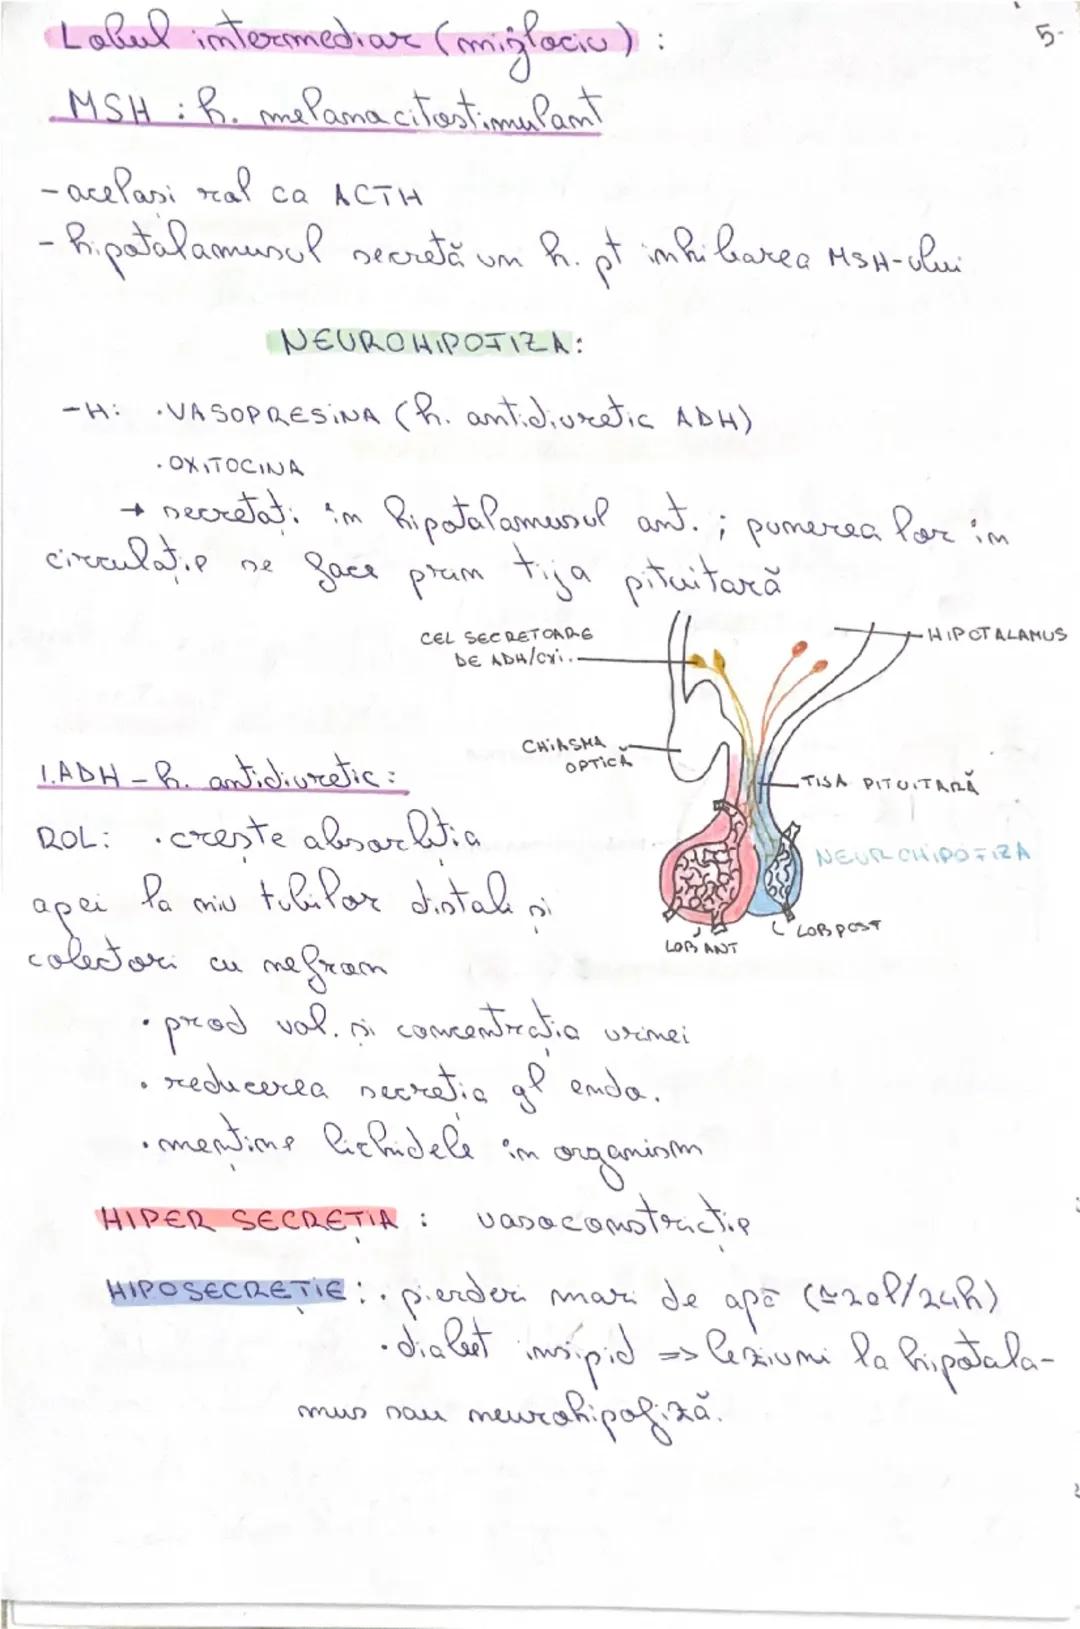 Lobul intermediar (mijlociu) :
5.
MSH : h. melanocitostimulant
- acelasi rol ca ACTH
- hipotalamusul secretă un h. pt inhibarea MSH-ului
NEUROHIPOFIZA:
- H: · VASOPRESINA (h. antidiuretic ADH)
· OXITOCINA
→ secretați în hipotalamusul ant. ; punerea lor în
circulație se face prin tija pituitară
CEL SECRETOARE
DE ADH/OXI.
HIPOTALAMUS
CHIASMA
OPTICĂ
TIJA PITUITARĂ
NEUROHIPOFIZA
LOB ANT
LOB POST
1. ADH - h. antidiuretic :
ROL: · crește absorbția
apei la niv tubilor distali și
colectori cu nefron
· prod vol. și concentrația urinei
· reducerea secreția gl endo.
· menține lichidele în organism
HIPER SECREȚIA : vasoconstricție
HIPOSECREȚIE : · pierderi mari de apă (≃20l/24h)
· diabet insipid => leziuni la hipotala-
mus sau neurohipofiză.